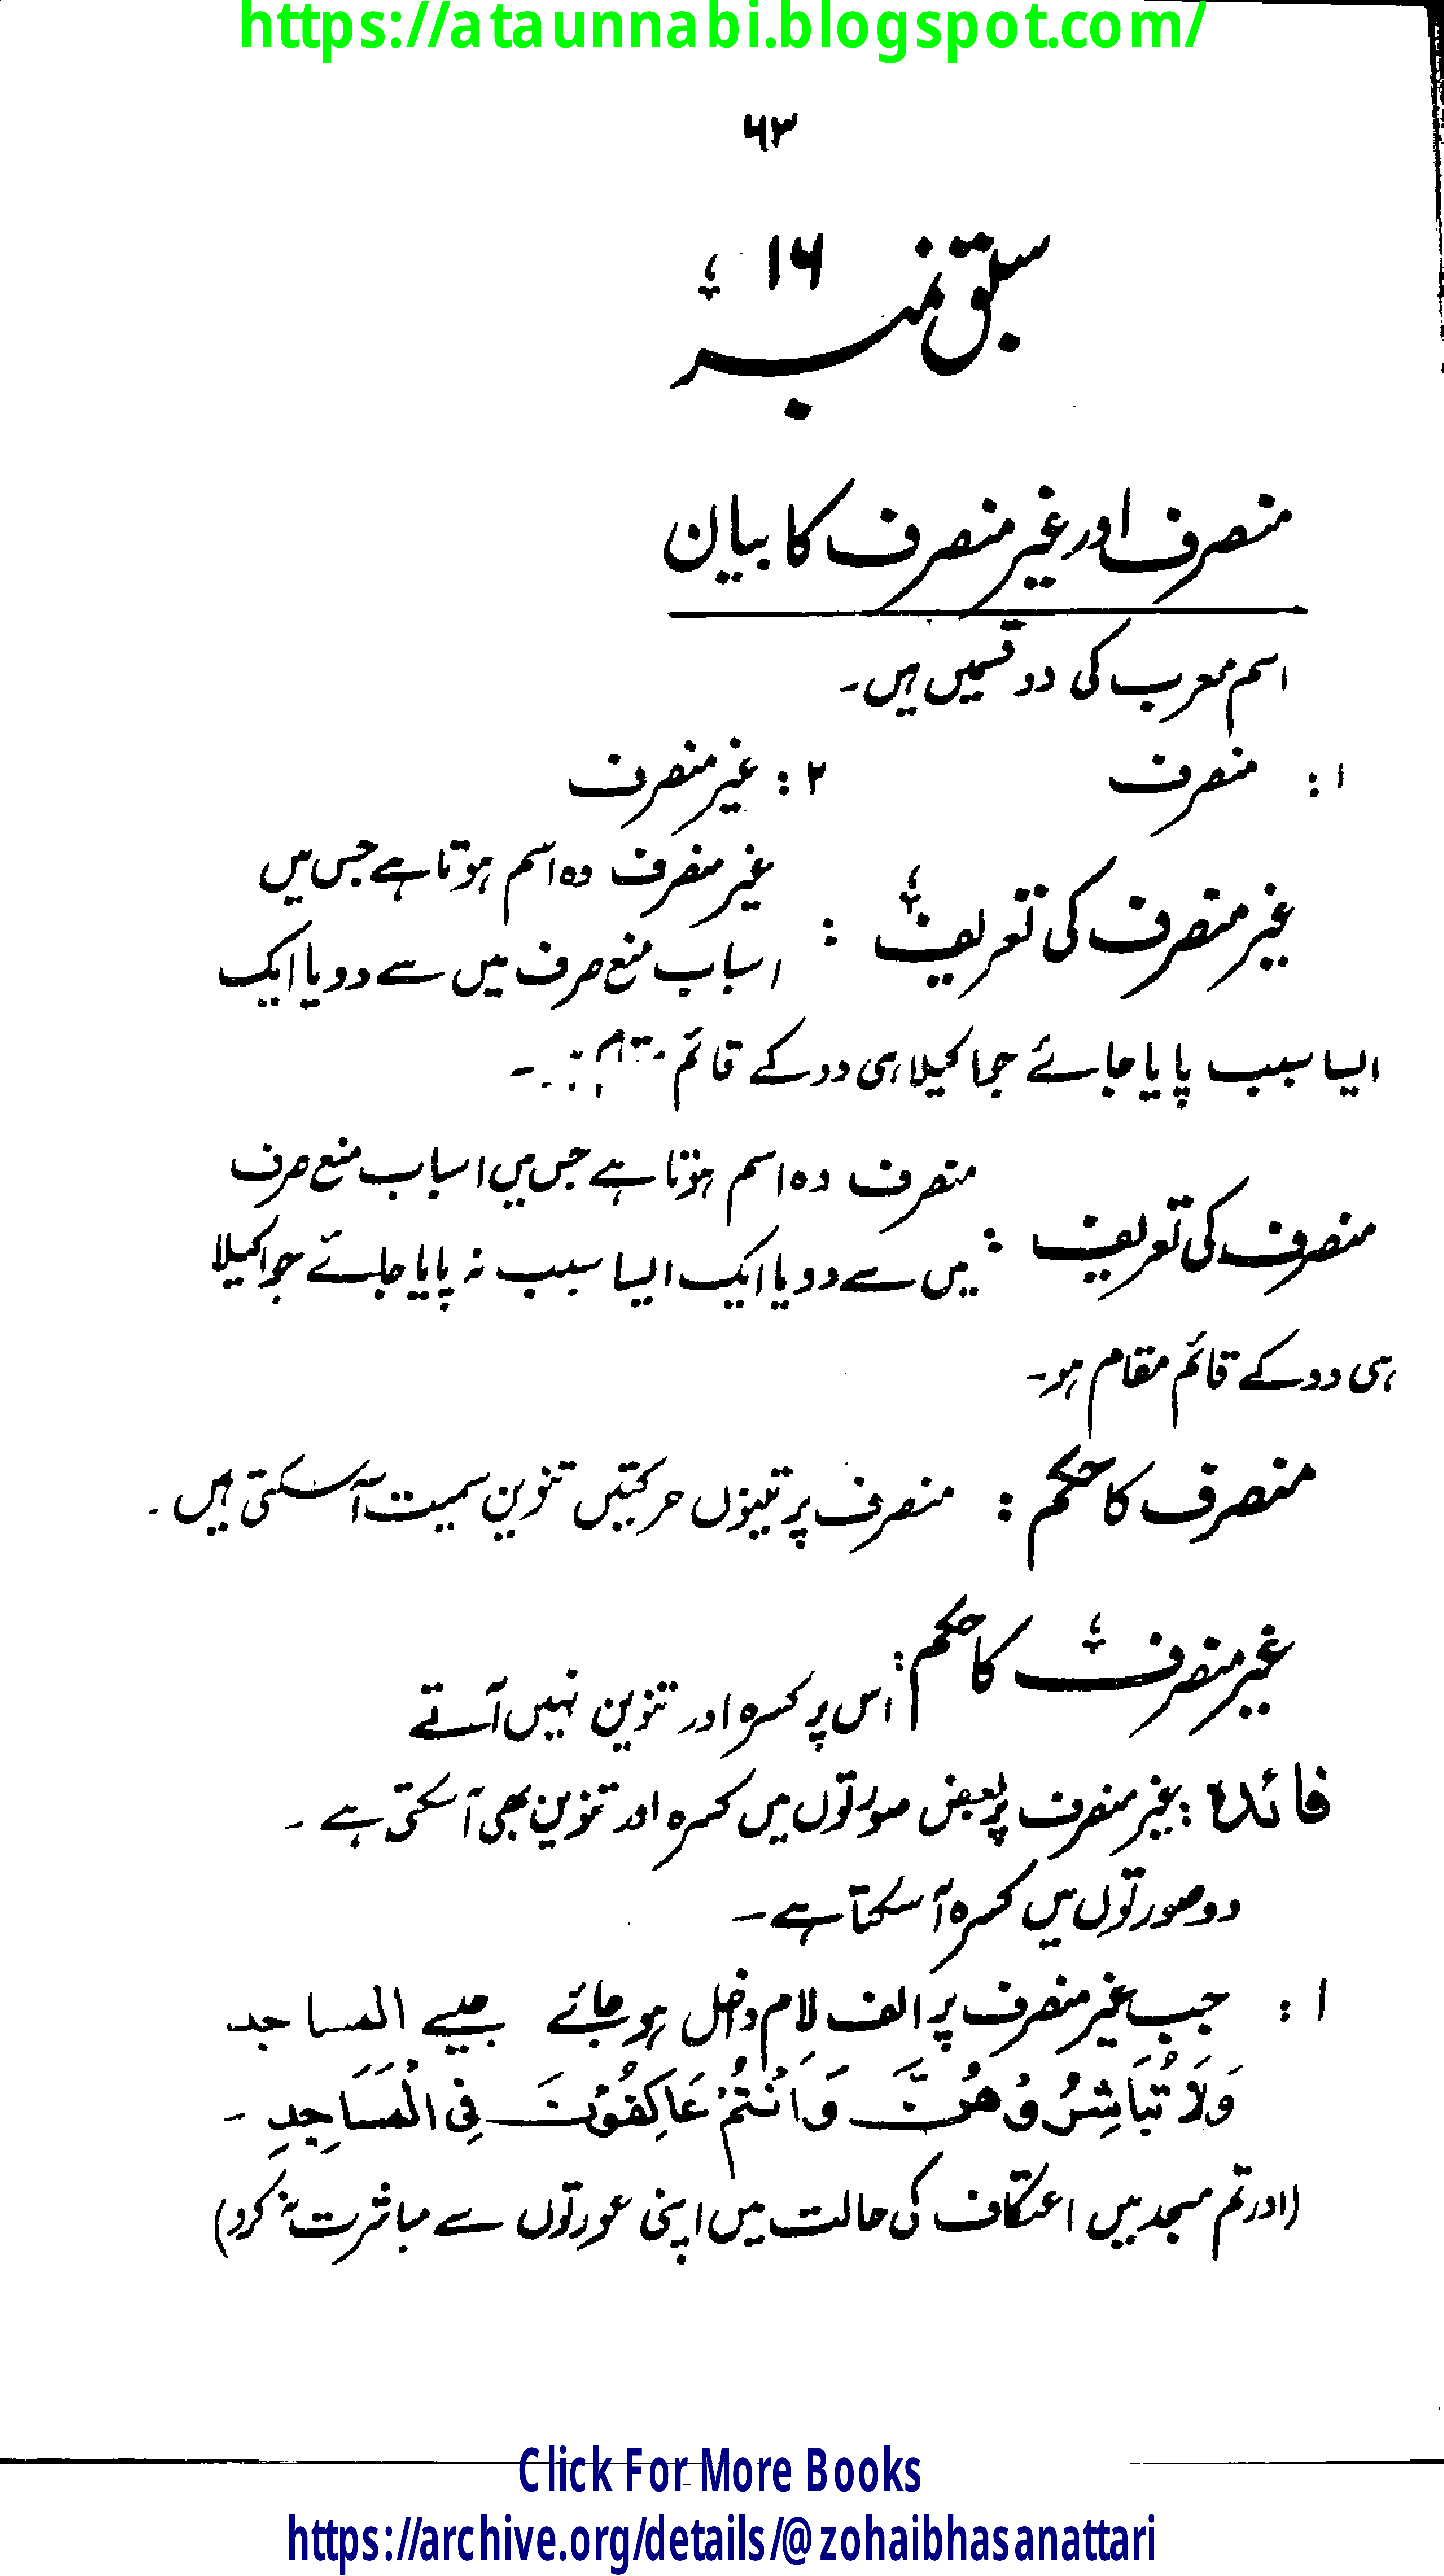 https://ataunnabi.blogspot.com/
۶۳
سبق نمبر ۱۶
منصرف اور غیر منصرف کا بیان
اسم معرب کی دو قسمیں ہیں۔
۱: منصرف ۲: غیر منصرف
غیر منصرف کی تعریف : غیر منصرف وہ اسم ہوتا ہے جس میں
اسباب منع صرف میں سے دو یا ایک
ایسا سبب پایا جائے جو اکیلا ہی دو کے قائم
منصرف کی تعریف : منصرف وہ اسم ہوتا ہے جس میں اسباب منع صرف
میں سے دو یا ایک ایسا سبب نہ پایا جائے جو اکیلا
ہی دو کے قائم مقام ہو۔
منصرف کا حکم : منصرف پر تینوں حرکتیں تنوین سمیت آ سکتی ہیں۔
غیر منصرف کا حکم : اس پر کسرہ اور تنوین نہیں آتے
فائدہ : غیر منصرف پر بعض صورتوں میں کسرہ اور تنوین بھی آ سکتی ہے۔
دو صورتوں میں کسرہ آ سکتا ہے۔
۱: جب غیر منصرف پر الف لام داخل ہو جائے جیسے المساجد
وَلَا تُبَاشِرُوْهُنَّ وَاَنْتُمْ عَاكِفُوْنَ فِی الْمَسَاجِدِ۔
(اور تم مسجد میں اعتکاف کی حالت میں اپنی عورتوں سے مباشرت نہ کرو)
Click For More Books
https://archive.org/details/@zohaibhasanattari